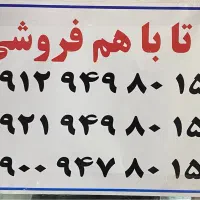 تا با هم فروشی
۹۱۲ ۹۴۹ ۸۰ ۱۵
۹۲۱ ۹۴۹ ۸۰ ۱۵
۹۰۰ ۹۴۷ ۸۰ ۱۵